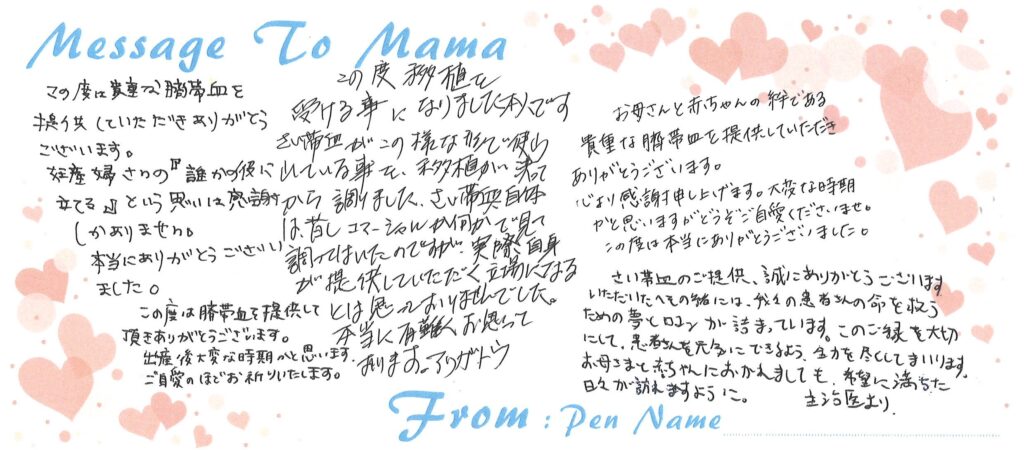 Message To Mama
この度は貴重な臍帯血を
提供していただきありがとう
ございます。
妊産婦さんの『誰かの役に
立てる』という思いは感謝
しかありません。
本当にありがとうございい
ました。
この度は臍帯血を提供して
頂きありがとうございます。
出産後大変な時期かと思います。
ご自愛のほどお祈りいたします。
この度 移植を
受ける事になりました です
さい帯血がこの様な形で使わ
れている事を、移植が決って
から調りました、さい帯血自体
は、昔しコマーシャルか何かで見て
調ってはいたのですが、実際、自身
が提供していただく立場になる
とは思っておりませんでした。
本当に有難くお思って
おります。アリガトウ
お母さんと赤ちゃんの絆である
貴重な臍帯血を提供していただき
ありがとうございます。
心より感謝申し上げます。大変な時期
かと思いますがどうぞご自愛くださいませ。
この度は本当にありがとうございました。
さい帯血のご提供、誠にありがとうございます
いただいたへその緒には、我々の患者さんの命を救う
ための夢とロマンが詰まっています。このご縁を大切
にして、患者さんを元気にできるよう、全力を尽くしてまいります。
お母さまと赤ちゃんにおかれましても、希望に満ちた
日々が訪れますように。
主治医より
From : Pen Name